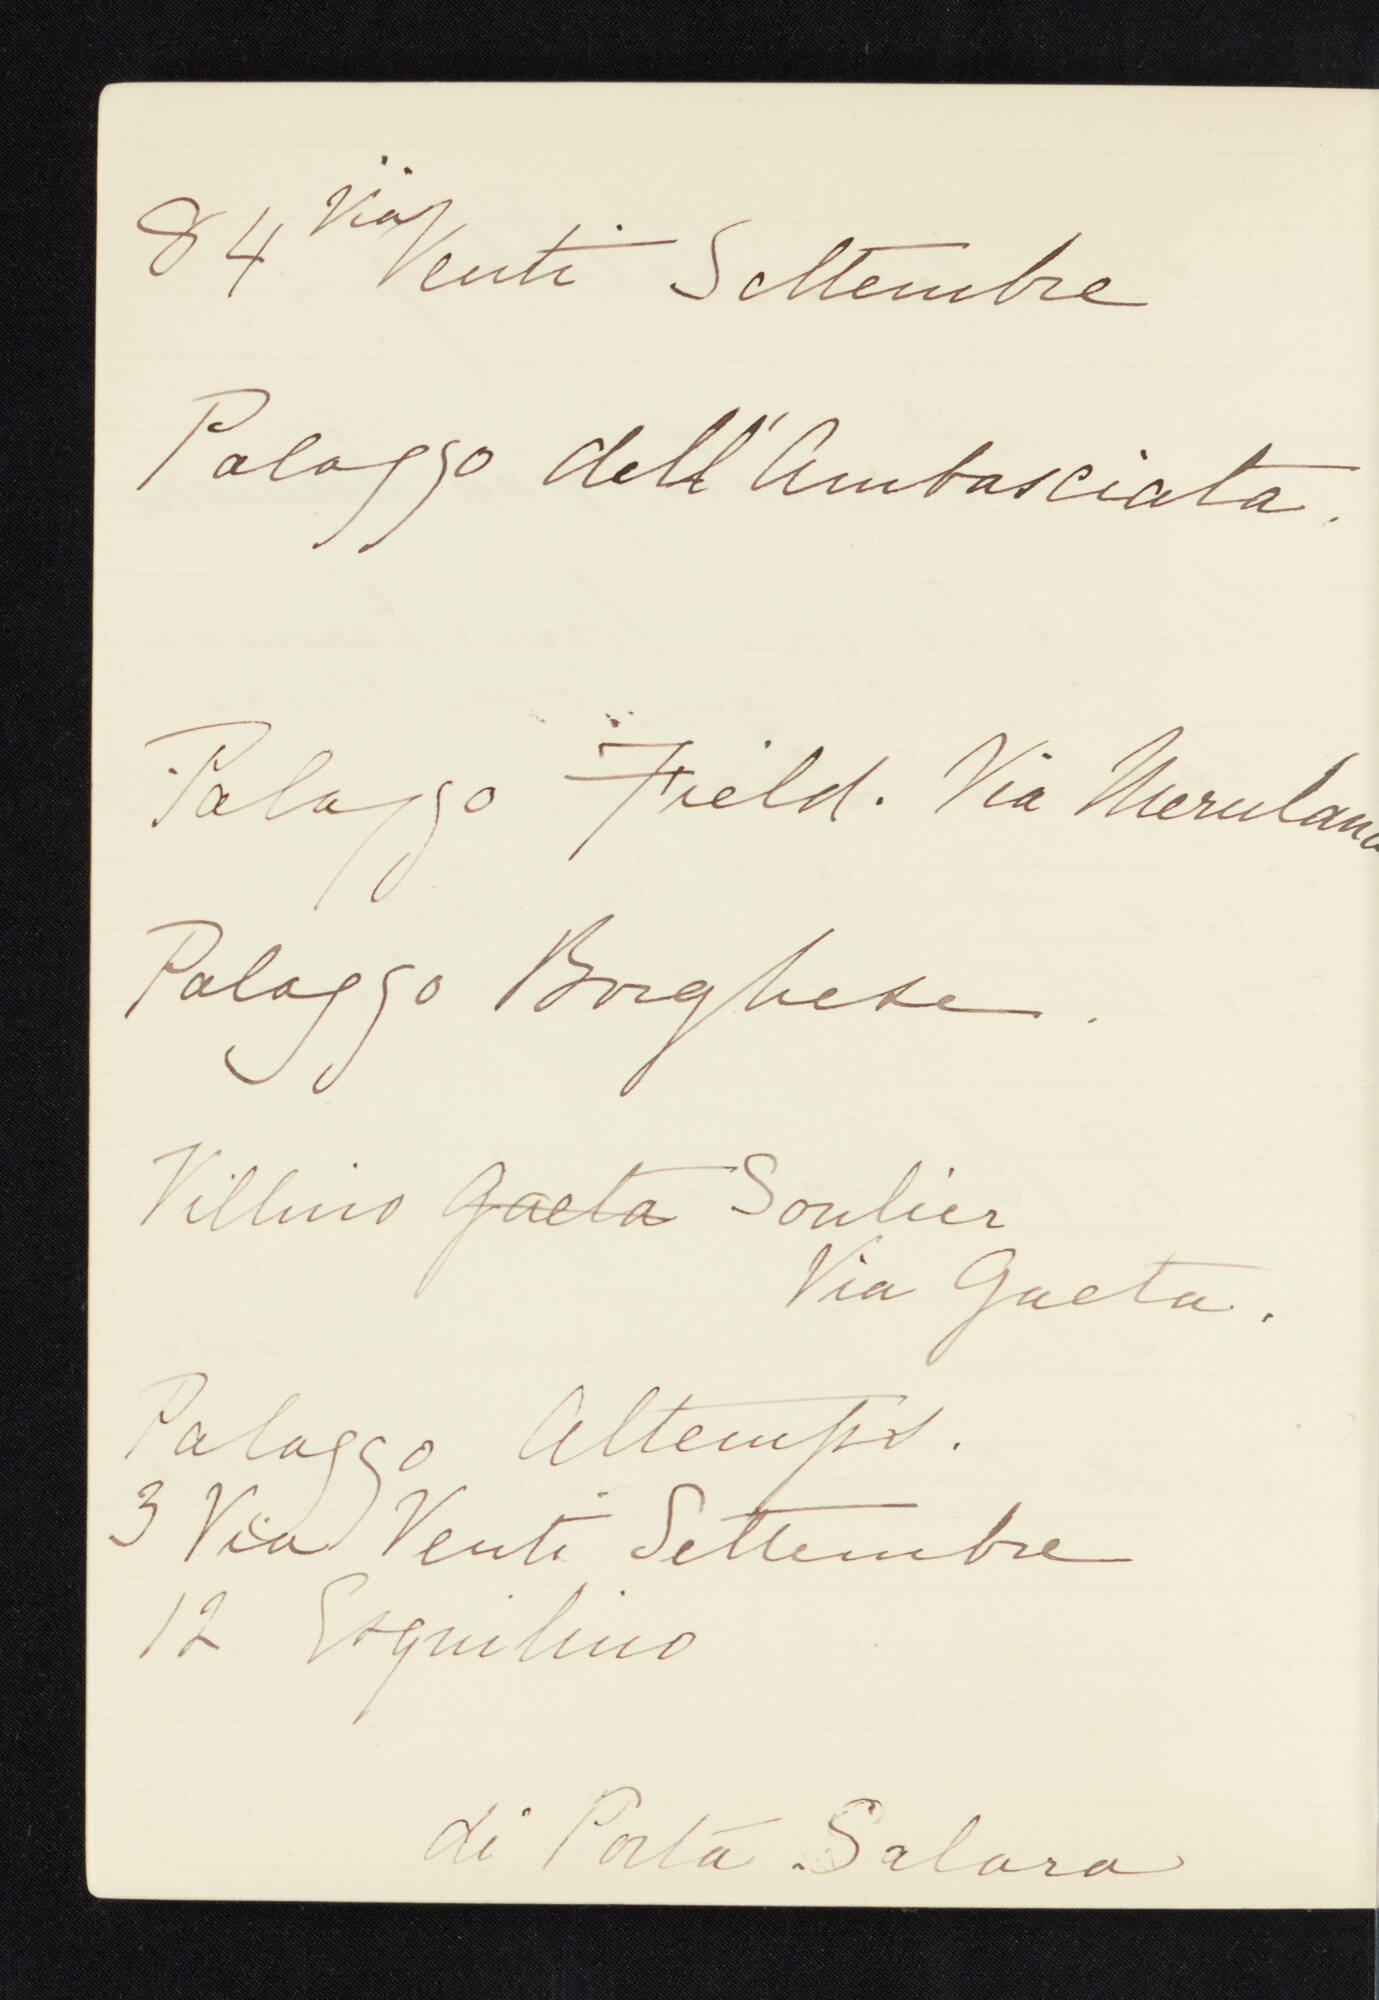 84 Via Venti Settembre
Palazzo dell'Ambasciata.
Palazzo Field. Via Merulana
Palazzo Borghese.
Villino Gaeta Soulier
Via Gaeta.
Palazzo Altemps.
3 Via Venti Settembre
12 Esquilino
di Porta Salara